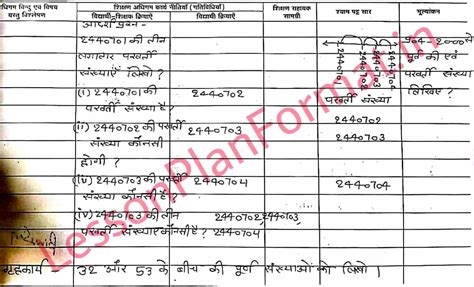 अधिगम बिन्दु एवं विषय वस्तु विश्लेषण
शिक्षण अधिगम कार्य नीतियाँ (गतिविधियां)
विद्यार्थी-शिक्षक क्रियाएँ
विद्यार्थी क्रियाएँ
शिक्षण सहायक सामग्री
श्याम पट्ट सार
मूल्यांकन
आदर्श प्रश्न-
2440701 की तीन
लगातार परवर्ती
संख्याएँ लिखो?
2440701
2440702
2440703
2440704
परवर्ती संख्या
प्र04- 2000 से
पूर्व की एवं
परवर्ती संख्या
लिखिए?
(i) 2440701 की
परवर्ती संख्या है?
2440702
2440702
(ii) 2440702 की परवर्ती
संख्या कौनसी
होगी?
2440703
2440703
(iv) 2440703 की परवर्ती
संख्या कौनसी है?
2440704
2440704
(iv) 2440703 की तीन
परवर्ती संख्याएं कौनसी है?
2440702 2440703
2440704
गृहकार्य - 32 और 53 के बीच की पूर्ण संख्याओं को लिखो।
LessonPlanFormat.in